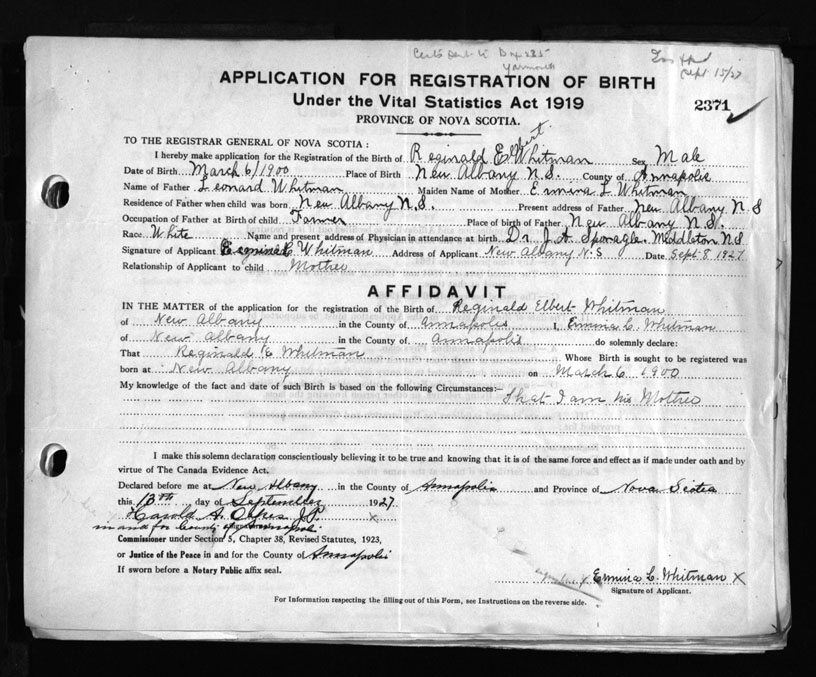 Yarmouth
Sept 15/27
APPLICATION FOR REGISTRATION OF BIRTH
Under the Vital Statistics Act 1919
2371
PROVINCE OF NOVA SCOTIA.
TO THE REGISTRAR GENERAL OF NOVA SCOTIA :
I hereby make application for the Registration of the Birth of Reginald Elbert Whitman Sex Male
Date of Birth March 6/1900 Place of Birth New Albany N.S. County of Annapolis
Name of Father Leonard Whitman Maiden Name of Mother Ermina L Whitman
Residence of Father when child was born New Albany N.S. Present address of Father New Albany N S
Occupation of Father at Birth of child Farmer Place of birth of Father New Albany N.S.
Race White Name and present address of Physician in attendance at birth Dr. J. A. Sponagle, Middleton N S
Signature of Applicant Whitman Address of Applicant New Albany N.S Date Sept 8 1927
Relationship of Applicant to child Mother
AFFIDAVIT
IN THE MATTER of the application for the registration of the Birth of Reginald Elbert Whitman
of New Albany in the County of Annapolis I, Ermina L. Whitman
of New Albany in the County of Annapolis do solemnly declare:
That Reginald E Whitman Whose Birth is sought to be registered was
born at New Albany on March 6 1900
My knowledge of the fact and date of such Birth is based on the following Circumstances:—
That I am his Mother
I make this solemn declaration conscientiously believing it to be true and knowing that it is of the same force and effect as if made under oath and by
virtue of The Canada Evidence Act.
Declared before me at New Albany in the County of Annapolis and Province of Nova Scotia
this 13th day of September 1927
Harold A. Oakes J.P. X
in and for County of Annapolis
Commissioner under Section 5, Chapter 38, Revised Statutes, 1923,
or Justice of the Peace in and for the County of Annapolis
If sworn before a Notary Public affix seal.
Ermina L. Whitman X
Signature of Applicant.
For Information respecting the filling out of this Form, see Instructions on the reverse side.